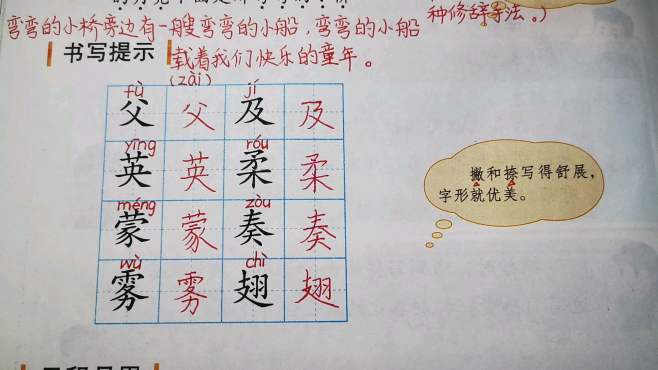 种修辞手法。）
弯弯的小桥旁边有一艘弯弯的小船，弯弯的小船
书写提示 载着我们快乐的童年。
(zài)
fù jí
父 父 及 及
yīng róu
英 英 柔 柔
méng zòu
蒙 蒙 奏 奏
wù chì
雾 雾 翅 翅
撇和捺写得舒展，
字形就优美。